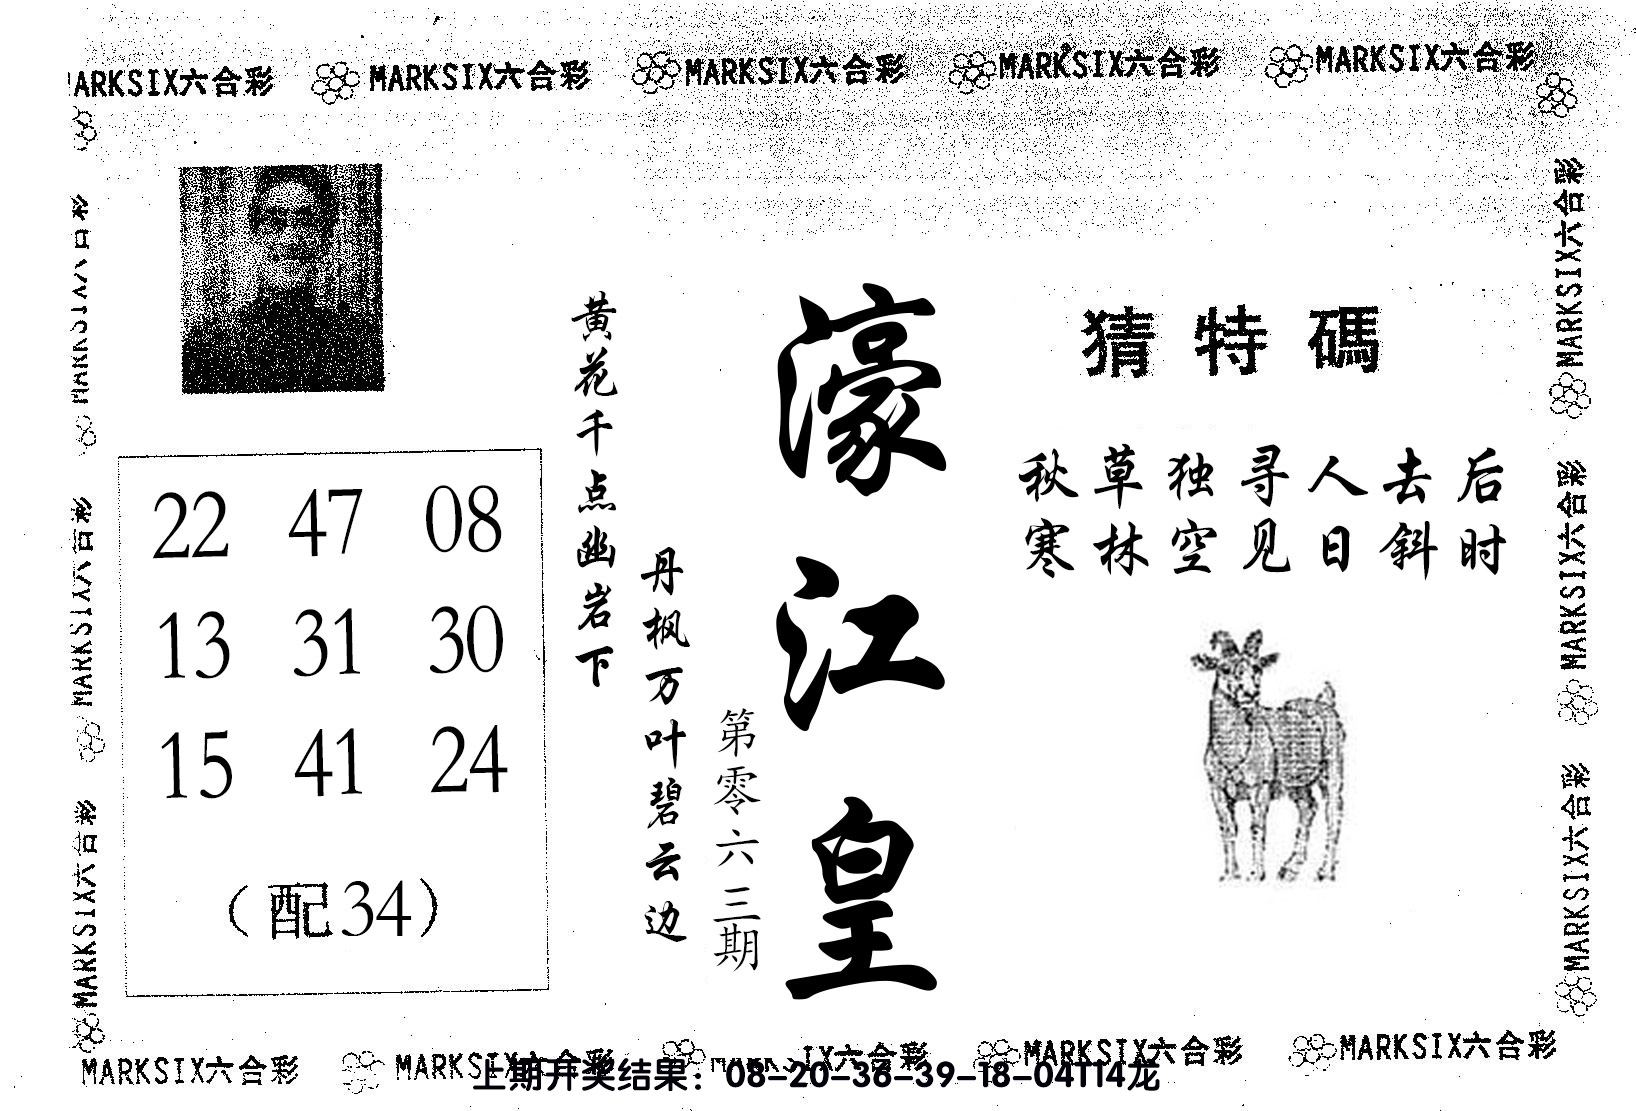 MARKSIX六合彩 MARKSIX六合彩 MARKSIX六合彩 MARKSIX六合彩 MARKSIX六合彩
猜特碼
秋草独寻人去后
寒林空见日斜时
濠江皇
第零六三期
黄花千点幽岩下
丹枫万叶碧云边
22 47 08
13 31 30
15 41 24
（配34）
MARKSIX六合彩
MARKSIX六合彩
MARKSIX六合彩
MARKSIX六合彩
MARKSIX六合彩
MARKSIX六合彩
MARKSIX六合彩 MARKSIX六合彩 MARKSIX六合彩 MARKSIX六合彩 MARKSIX六合彩
上期开奖结果：08-20-36-39-18-04T14龙